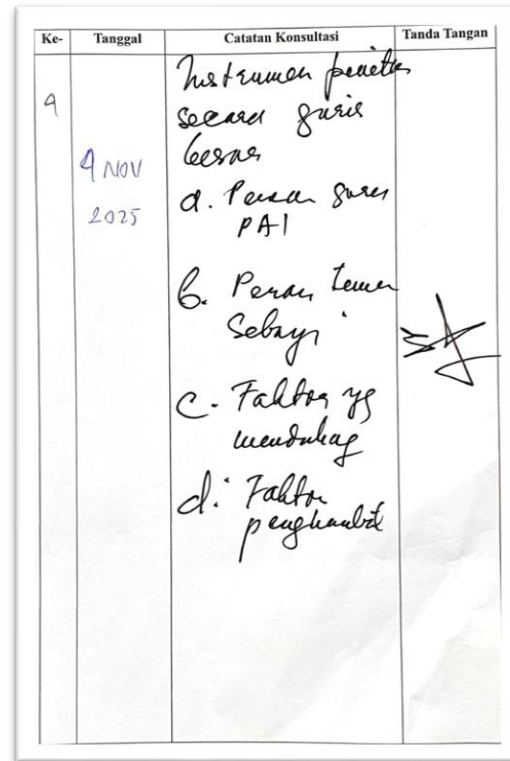 Ke- Tanggal Catatan Konsultasi Tanda Tangan
Instrumen penelitian
4 secara garis
besar
4 NOV
2025
a. Peran guru
PAI
b. Peran teman
Sebaya
c. Faktor yg
mendukung
d. Faktor
penghambat